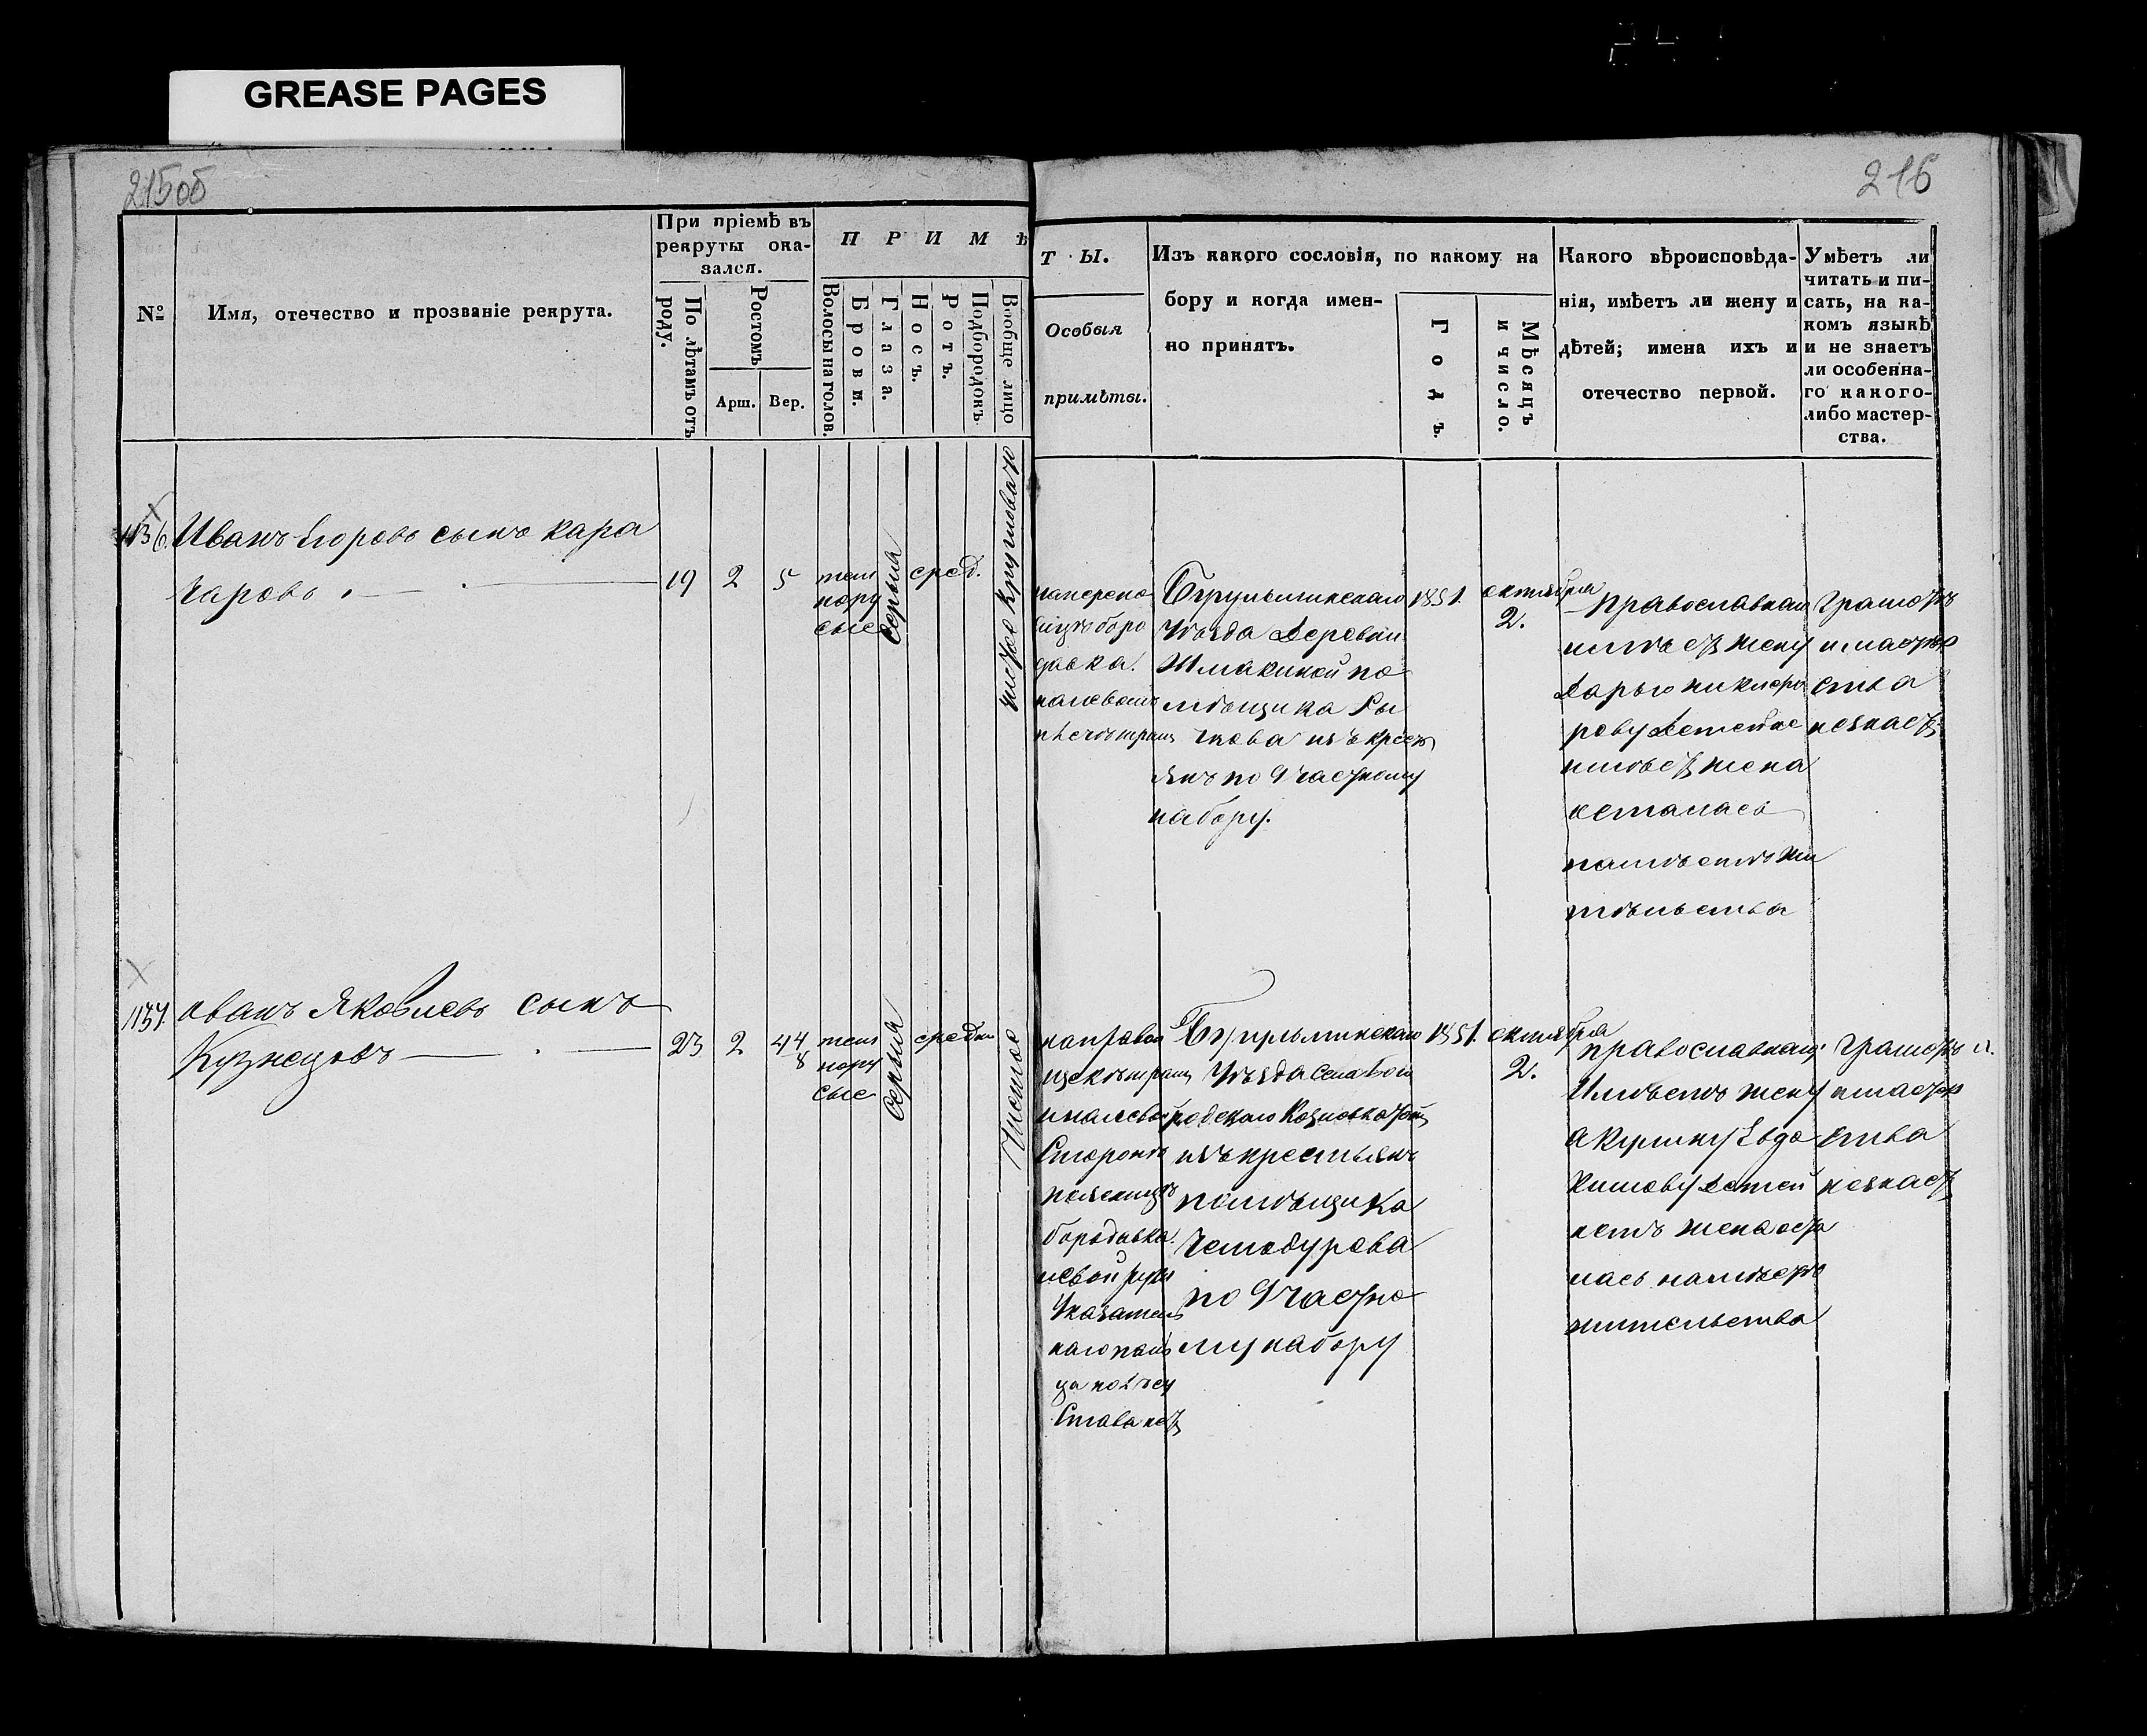 GREASE PAGES
215об
216
№
Имя, отечество и прозваніе рекрута.
При пріемѣ въ
рекруты ока-
зался.
По лѣтамъ отъ
роду.
Ростомъ
Арш.
Вер.
ПРИМѢ
Волосы на голов.
Брови.
Глаза.
Носъ.
Ротъ.
Подбородокъ
Вообще лицо
ТЫ.
Особыя
примѣты.
Изъ какого сословія, по какому на
бору и когда имен-
но принятъ.
Годъ.
Мѣсяцъ
и число.
Какого вѣроисповѣда-
нія, имѣетъ ли жену и
дѣтей; имена ихъ и
отечество первой.
Умѣетъ ли
читать и пи-
сать, на ка-
комъ языкѣ
и не знаетъ
ли особенна-
го какого-
либо мастер-
ства.
1136.
Иванъ Егоровъ сынъ Кара
чаровъ
19
2
5
темно
русые
серыя
сред.
чистое кругловато
на перено
сице боро
давка.
на левомъ
Бугульминскаго
Уѣзда Деревни
Шмакиной по
мѣщика Ры
чкова изъ крест
янъ по 9 частному
набору.
1851.
октября
2.
Православнаго
имѣетъ жену
Дарью Никифо
рову детей не
имѣетъ жена
осталась
на мѣстѣ жи
тѣльства
Грамотѣ
и мастер
ства
незнаетъ
1137.
Иванъ Яковлевъ сынъ
Кузнецовъ
23
2
4 4/8
темно
русые
серыя
средн
Чистое
на правой
щекѣ
и на левой
Стороне
пояснице
бородавка.
левой руки
Указатель
наго паль
ца
Става нетъ
Бугульминскаго
Уѣзда села
изъ крестьянъ
помѣщика
Чемодурова
по 9 частно
му набору
1851.
октября
2.
Православнаго
Имѣетъ жену
Акулину Евдо
кимову детей
нетъ жена оста
лась на мѣсте
жительства
Грамотѣ и
мастер
ства
незнаетъ